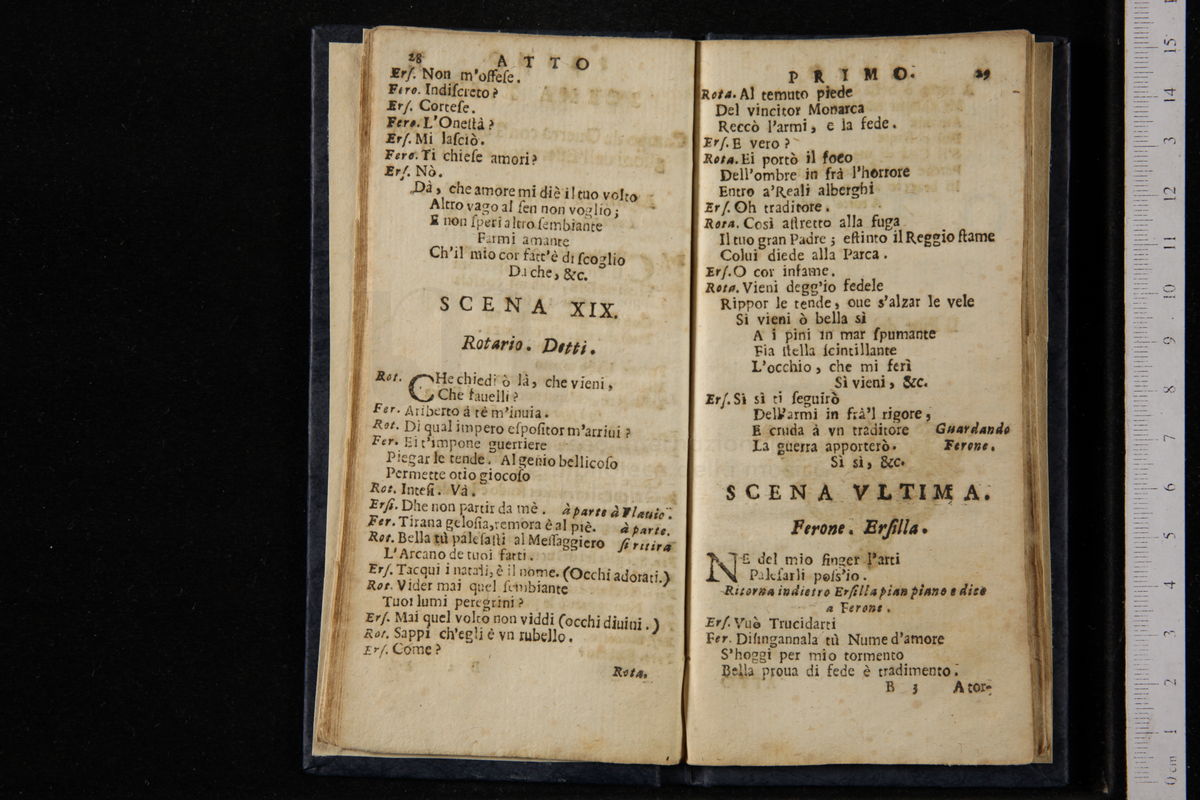 28 ATTO
Erſ. Non m'offeſe.
Fero. Indiſcreto?
Erſ. Corteſe.
Fero. L'Oneſtà?
Erſ. Mi laſciò.
Fero. Ti chieſe amori?
Erſ. Nò.
Dà, che amore mi diè il tuo volto
Altro vago al ſen non voglio;
E non ſperi altro ſembiante
Farmi amante
Ch'il mio cor fatt'è di ſcoglio
Da che, &c.
SCENA XIX.
Rotario. Detti.
Rot. CHe chiedi ò là, che vieni,
Che fauelli?
Fer. Ariberto à tè m'inuia.
Rot. Di qual impero eſpoſitor m'arriui?
Fer. Ei t'impone guerriere
Piegar le tende. Al genio bellicoſo
Permette otio giocoſo
Rot. Inteſi. Và.
Erſi. Dhe non partir da mè. à parte à Flauio.
Fer. Tirana geloſia, remora è al piè. à parte.
Rot. Bella tù paleſaſti al Meſſaggiero ſi ritira
L'Arcano de tuoi fatti.
Erſ. Tacqui i natali, è il nome. (Occhi adorati.)
Rot. Vider mai quel ſembiante
Tuoi lumi peregrini?
Erſ. Mai quel volto non viddi (occhi diuini.)
Rot. Sappi ch'egli è vn rubello.
Erſ. Come?
Rota.
PRIMO. 29
Rota. Al temuto piede
Del vincitor Monarca
Reccò l'armi, e la fede.
Erſ. E vero?
Rota. Ei portò il foco
Dell'ombre in frà l'horrore
Entro a'Reali alberghi
Erſ. Oh traditore.
Rota. Così aſtretto alla fuga
Il tuo gran Padre; eſtinto il Reggio ſtame
Colui diede alla Parca.
Erſ. O cor infame.
Rota. Vieni degg'io fedele
Rippor le tende, oue s'alzar le vele
Si vieni ò bella sì
A i pini in mar ſpumante
Fia ſtella ſcintillante
L'occhio, che mi ferì
Sì vieni, &c.
Erſ. Sì sì ti ſeguirò
Dell'armi in frà'l rigore,
E cruda à vn traditore Guardando
La guerra apporterò. Ferone.
Sì sì, &c.
SCENA VLTIMA.
Ferone. Erſilla.
NE del mio finger l'arti
Paleſarli poſs'io.
Ritorna indietro Erſilla pian piano e dice
a Ferone.
Erſ. Vuò Trucidarti
Fer. Diſingannala tù Nume d'amore
S'hoggi per mio tormento
Bella proua di fede è tradimento.
B 3 A tor-